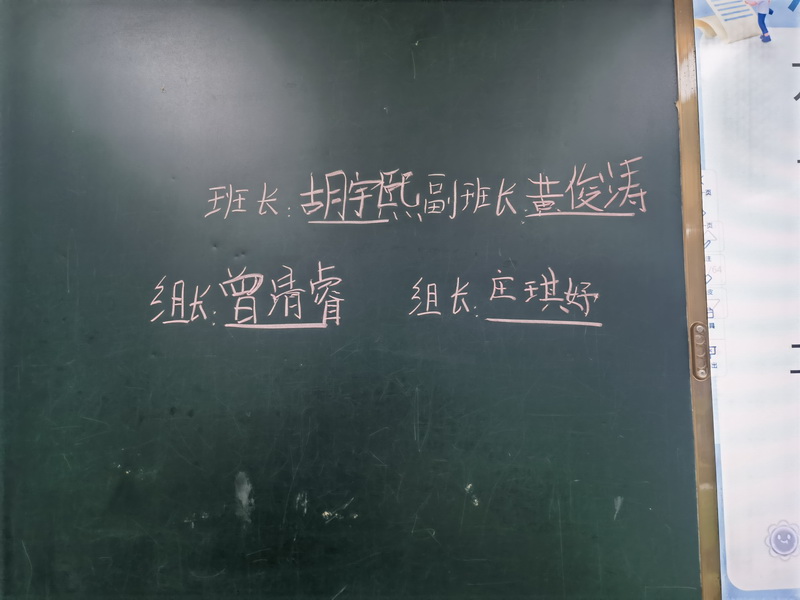 班长:胡宇熙副班长:黄俊涛
组长:曾清睿 组长:庄琪妤